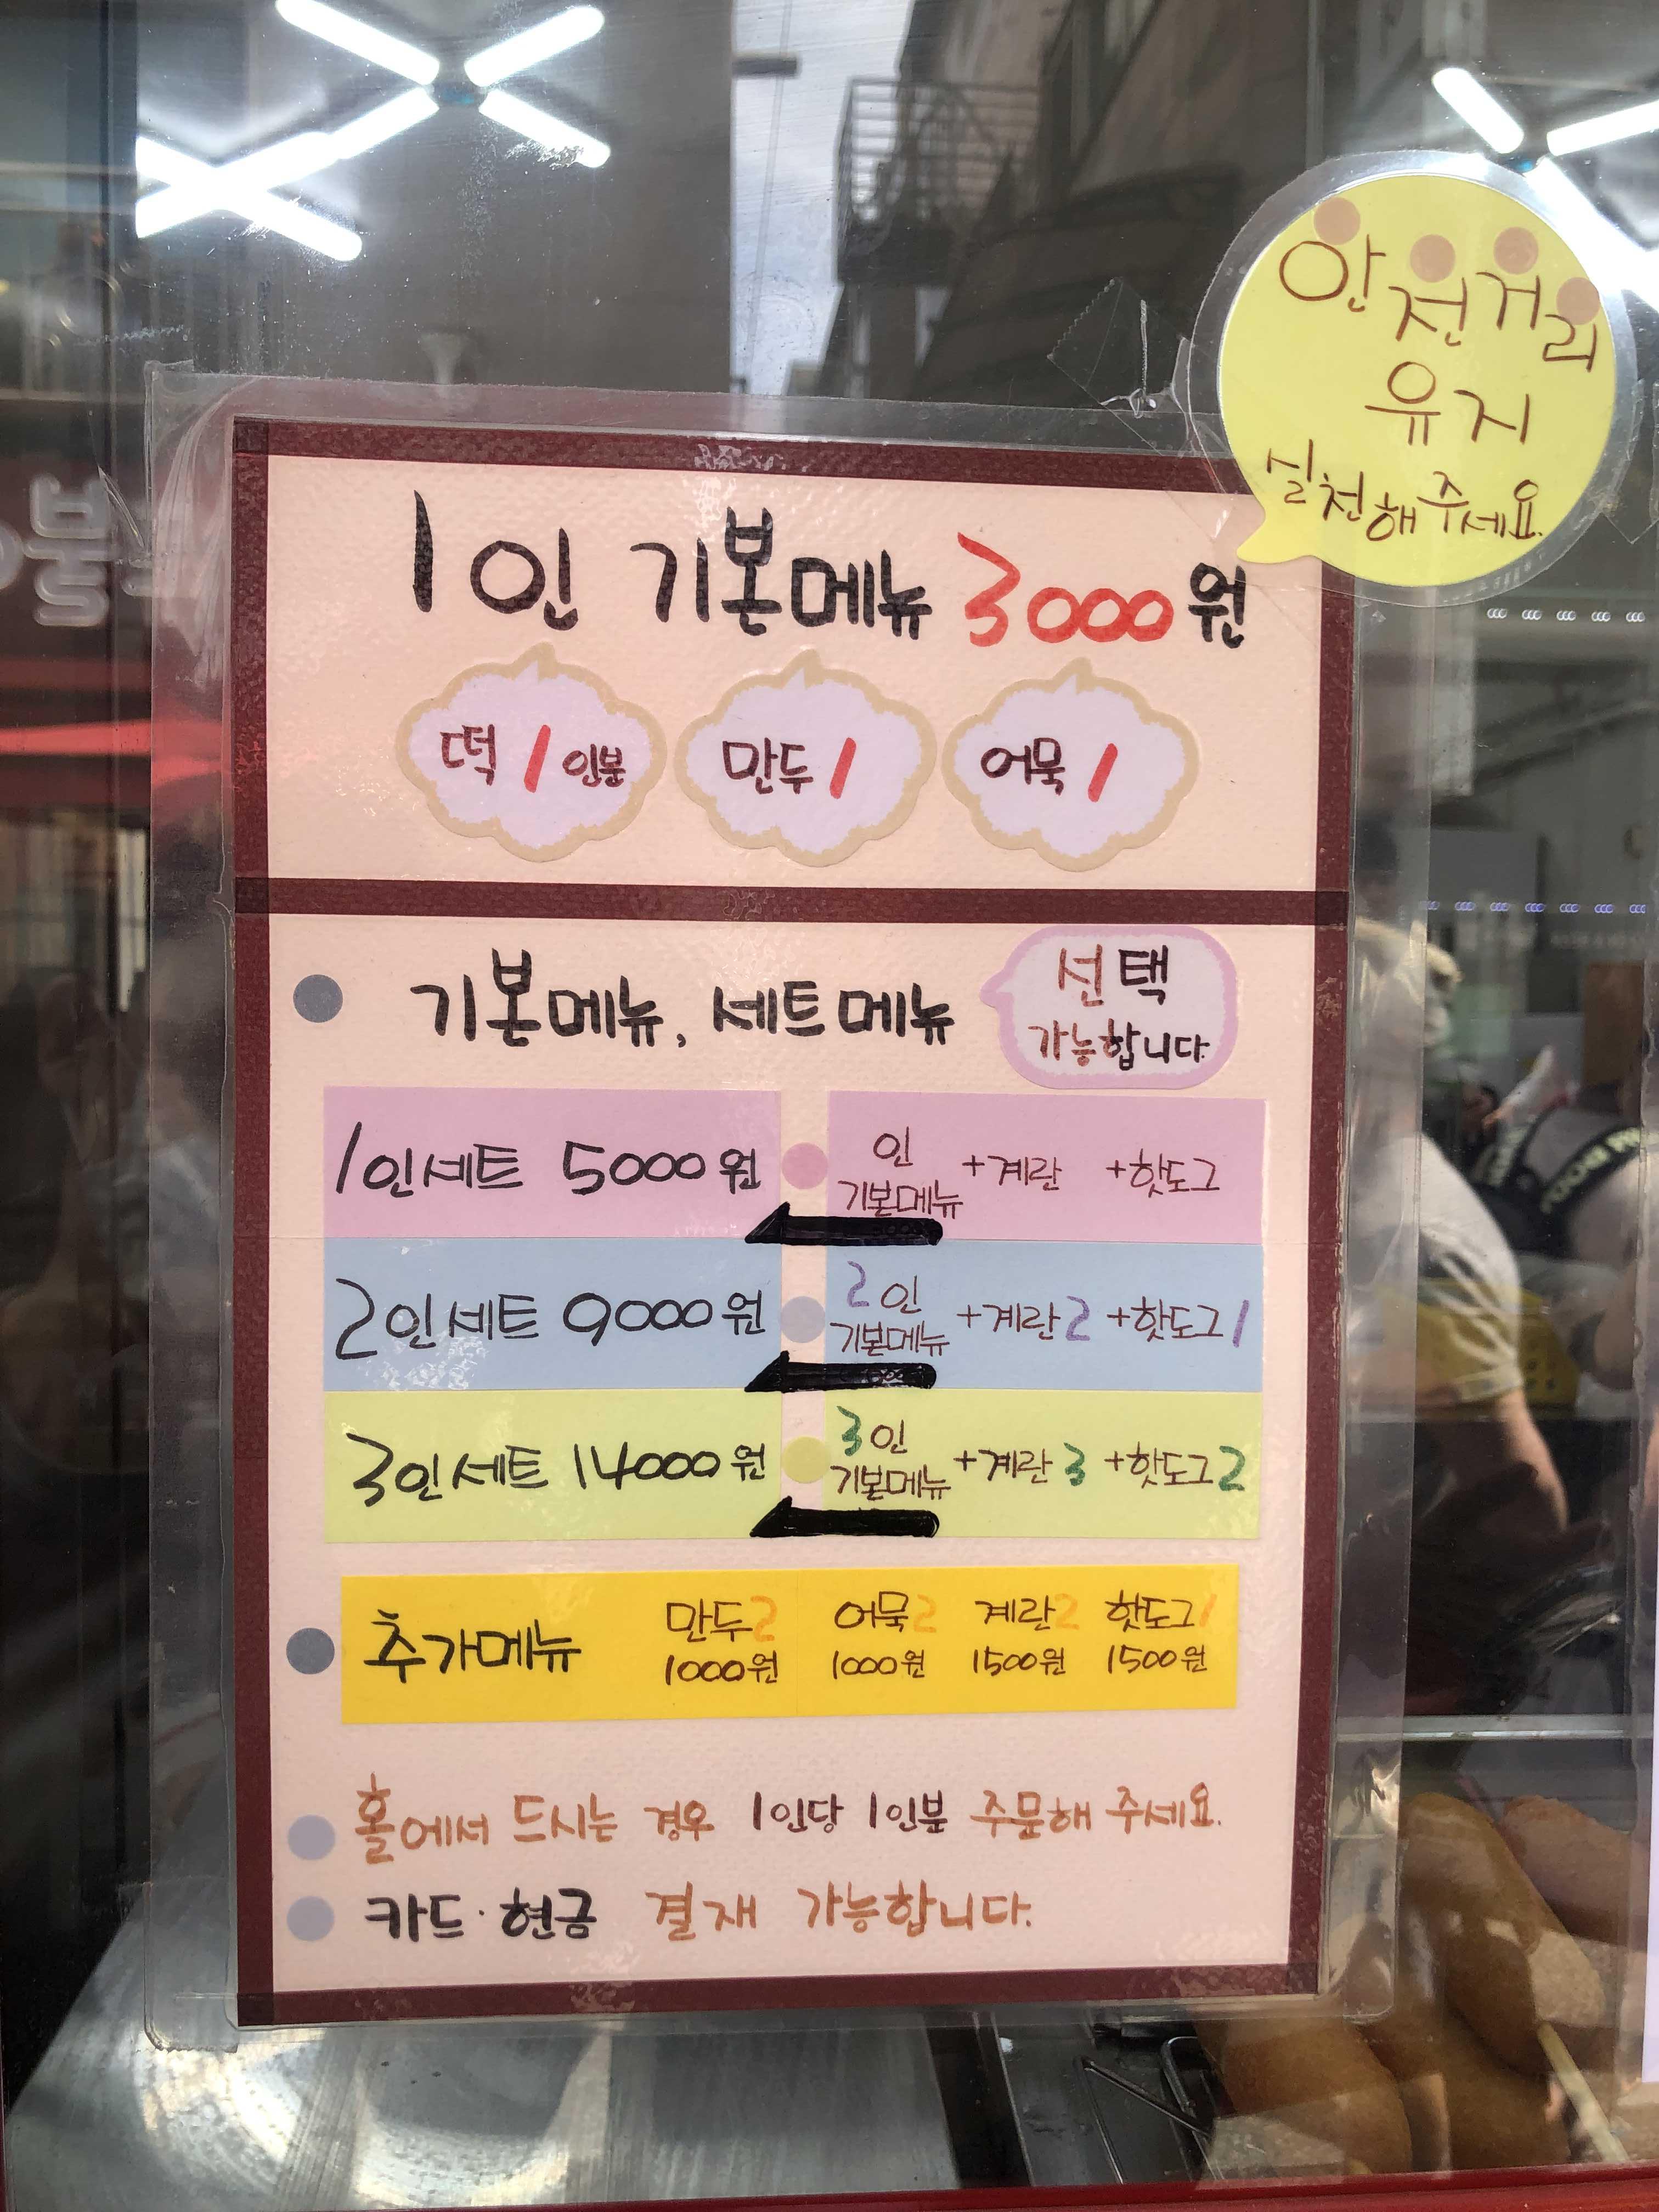 안전거리
유지
실천해주세요.
1인 기본메뉴 3000원
떡 1 인분 만두 1 어묵 1
기본메뉴, 세트메뉴
선택
가능합니다.
1인세트 5000원 인 기본메뉴 +계란 +핫도그
2인세트 9000원 2인 기본메뉴 +계란2 +핫도그1
3인세트 14000원 3인 기본메뉴 +계란3 +핫도그2
추가메뉴
만두2 어묵2 계란2 핫도그1
1000원 1000원 1500원 1500원
홀에서 드시는 경우 1인당 1인분 주문해 주세요.
카드·현금 결재 가능합니다.